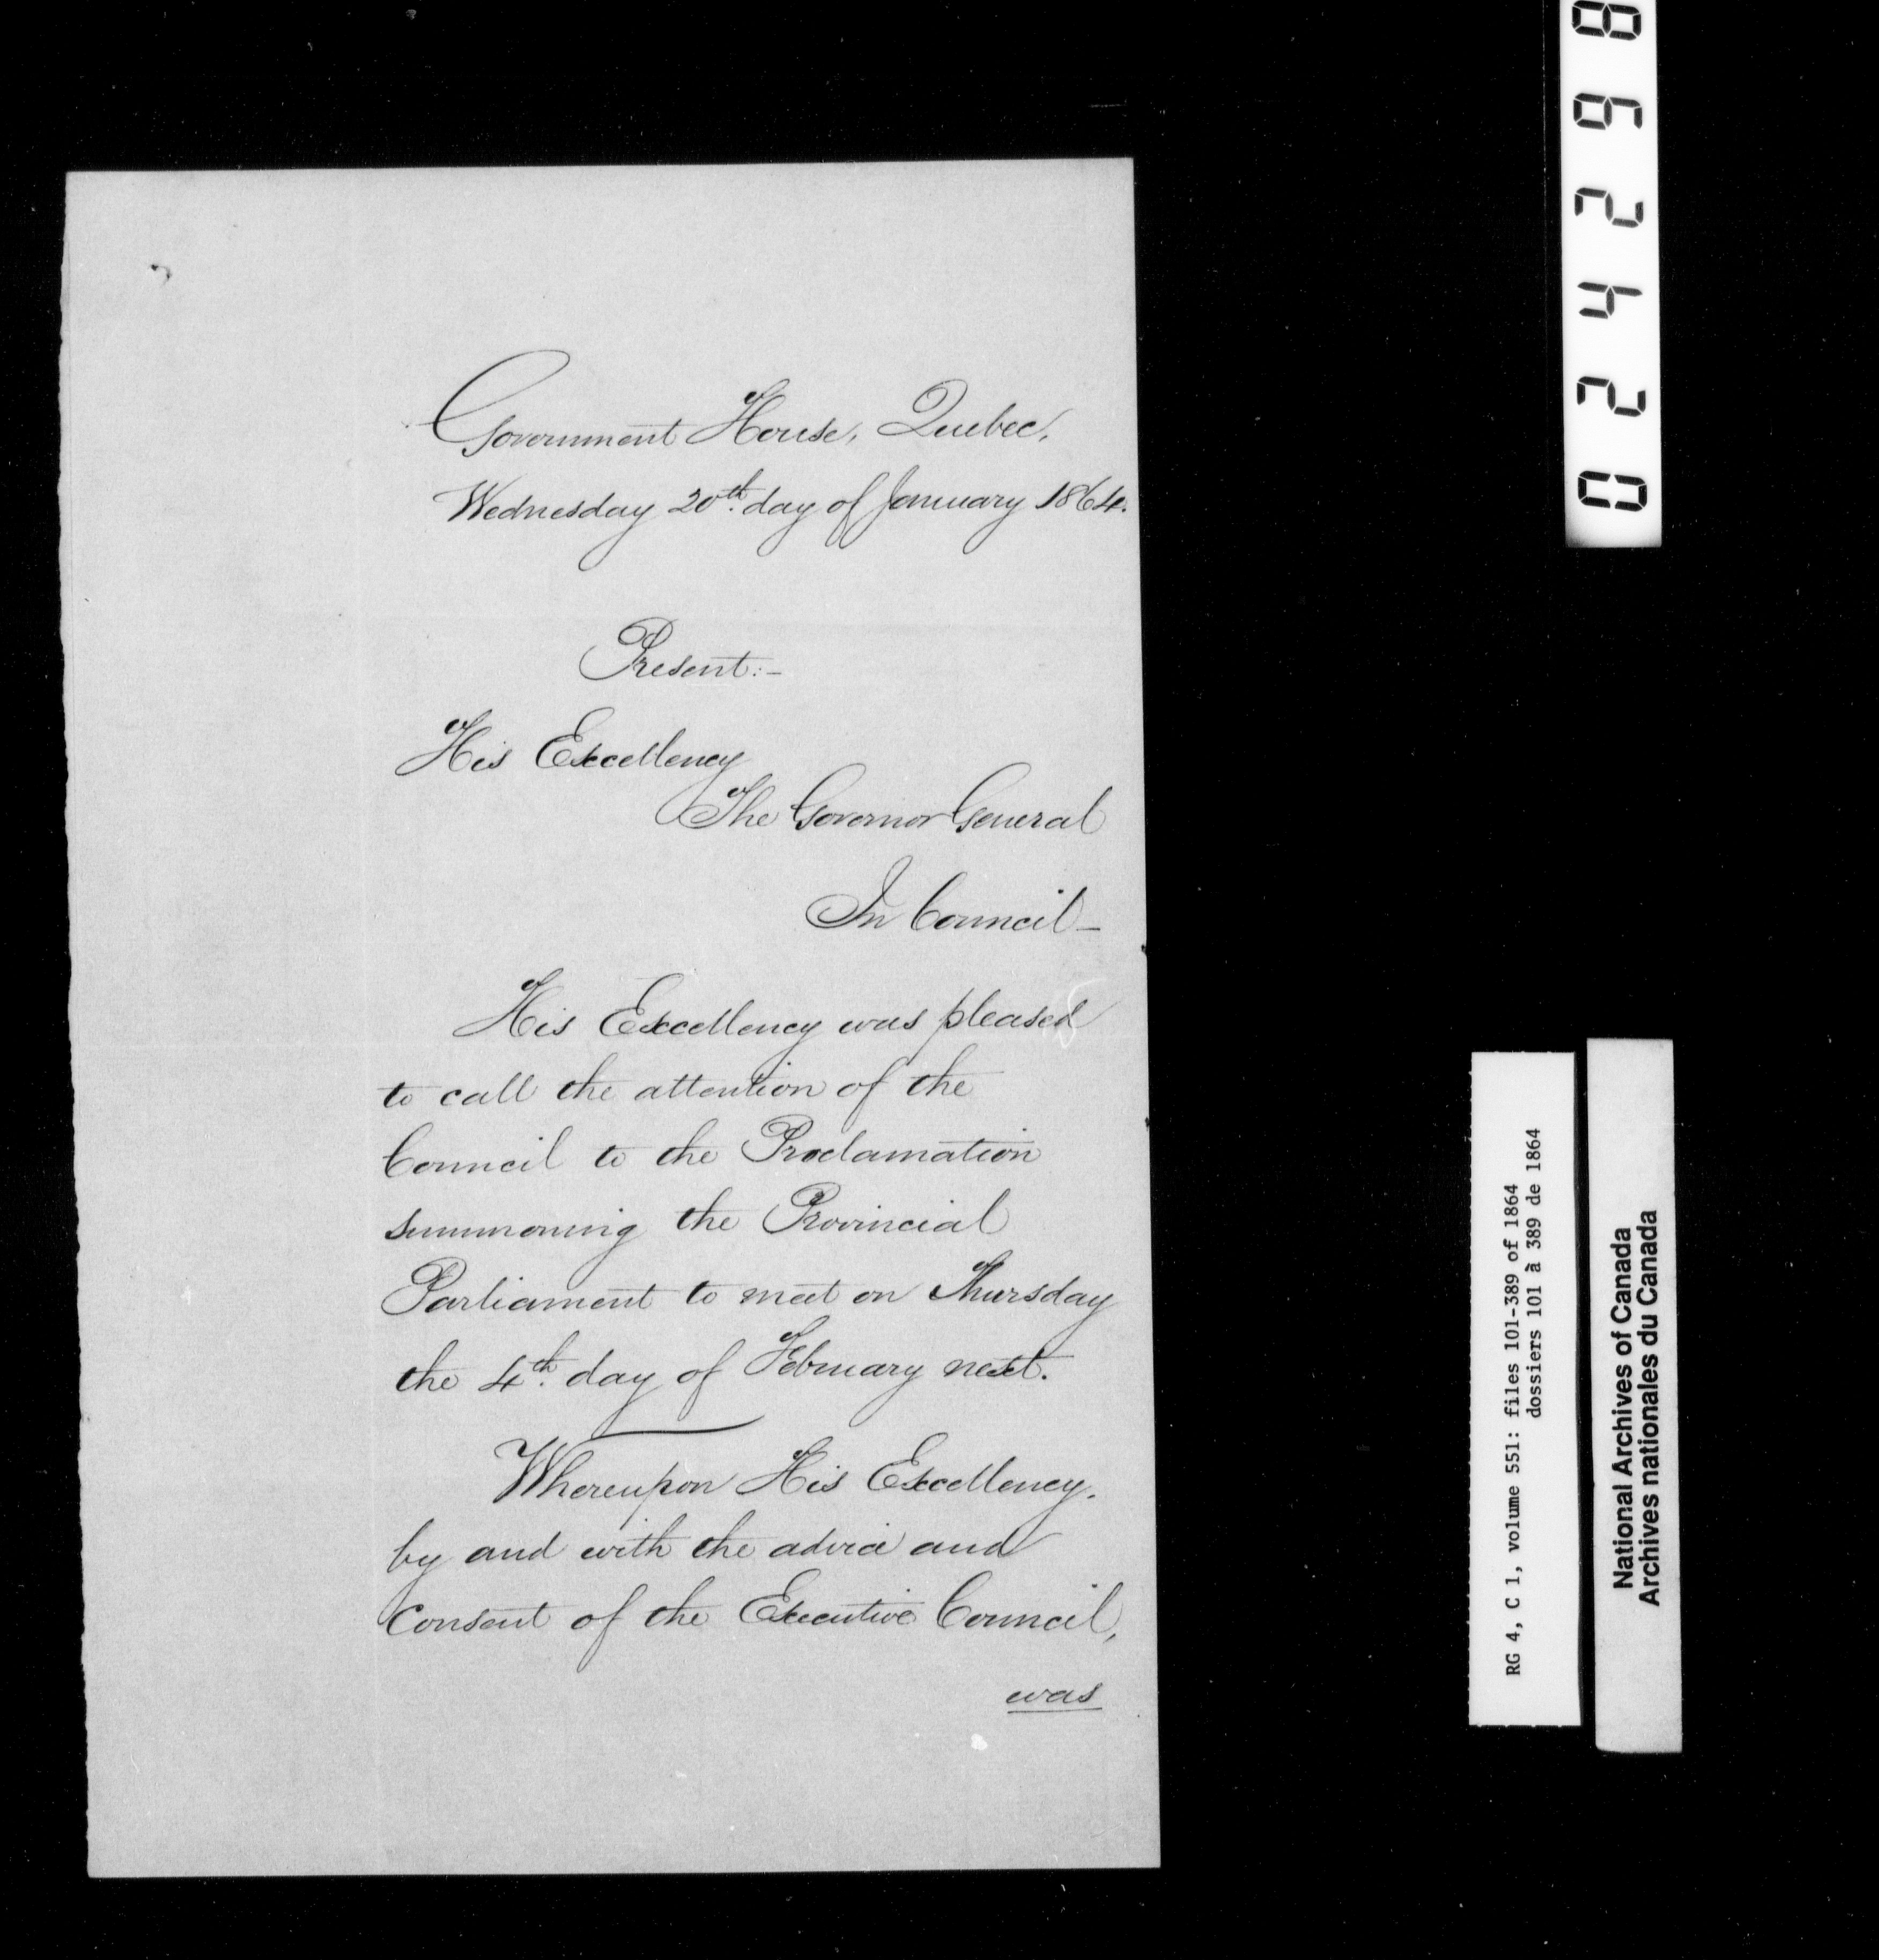 Government House, Quebec,
Wednesday 20th. day of January 1864.
Present:-
His Excellency
The Governor General
In Council-
His Excellency was pleased
to call the attention of the
Council to the Proclamation
summoning the Provincial
Parliament to meet on Thursday
the 4th. day of February next.
Whereupon His Excellency.
by and with the advice and
Consent of the Executive Council,
was
024298
RG 4, C 1, volume 551: files 101-389 of 1864
dossiers 101 à 389 de 1864
National Archives of Canada
Archives nationales du Canada